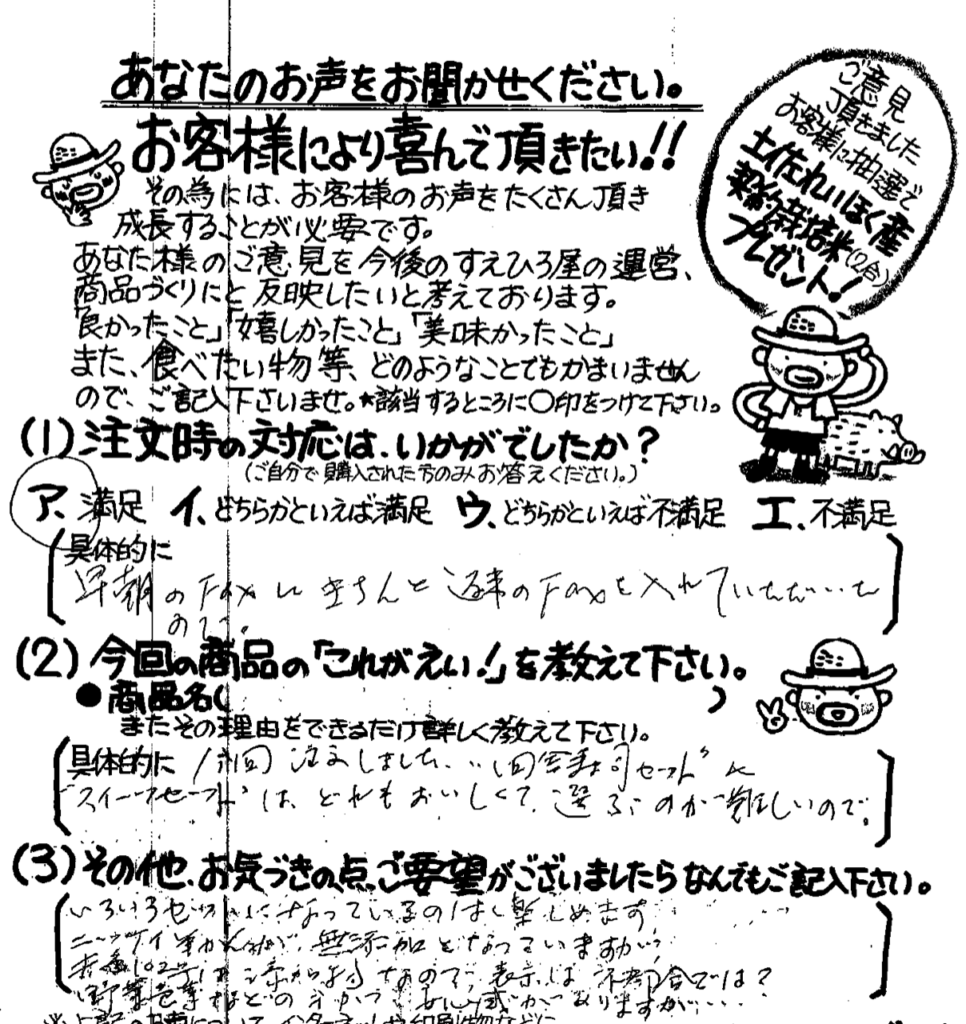 あなたのお声をお聞かせください。
お客様により喜んで頂きたい!!
その為には、お客様のお声をたくさん頂き
成長することが必要です。
あなた様のご意見を今後のすえひろ屋の運営、
商品づくりにと反映したいと考えております。
「良かったこと」「嬉しかったこと」「美味かったこと」
また、食べたい物等、どのようなことでもかまいません
ので、ご記入下さいませ。★該当するところに○印をつけて下さい。
ご意見
頂きました
お客様に抽選で
土佐れいほく産
契約栽培米(2合)
プレゼント!
(1)注文時の対応は、いかがでしたか?
(ご自分で購入された方のみお答えください。)
ア、満足 イ、どちらかといえば満足 ウ、どちらかといえば不満足 エ、不満足
具体的に
早朝のFaxにきちんと返事のFaxを入れていただいた
ので。
(2)今回の商品の「これがえい!」を教えて下さい。
●商品名( )
またその理由をできるだけ詳しく教えて下さい。
具体的に 注文しました、 セットと
"スイーツセット"は、どれもおいしくて、選ぶのが難しいので。
(3)その他、お気づきの点、ご要望がございましたらなんでもご記入下さい。
いろいろセットになっているのは楽しめます
無添加となっていますが、
なので、表示は不都合では?
野菜 などの がありますが…